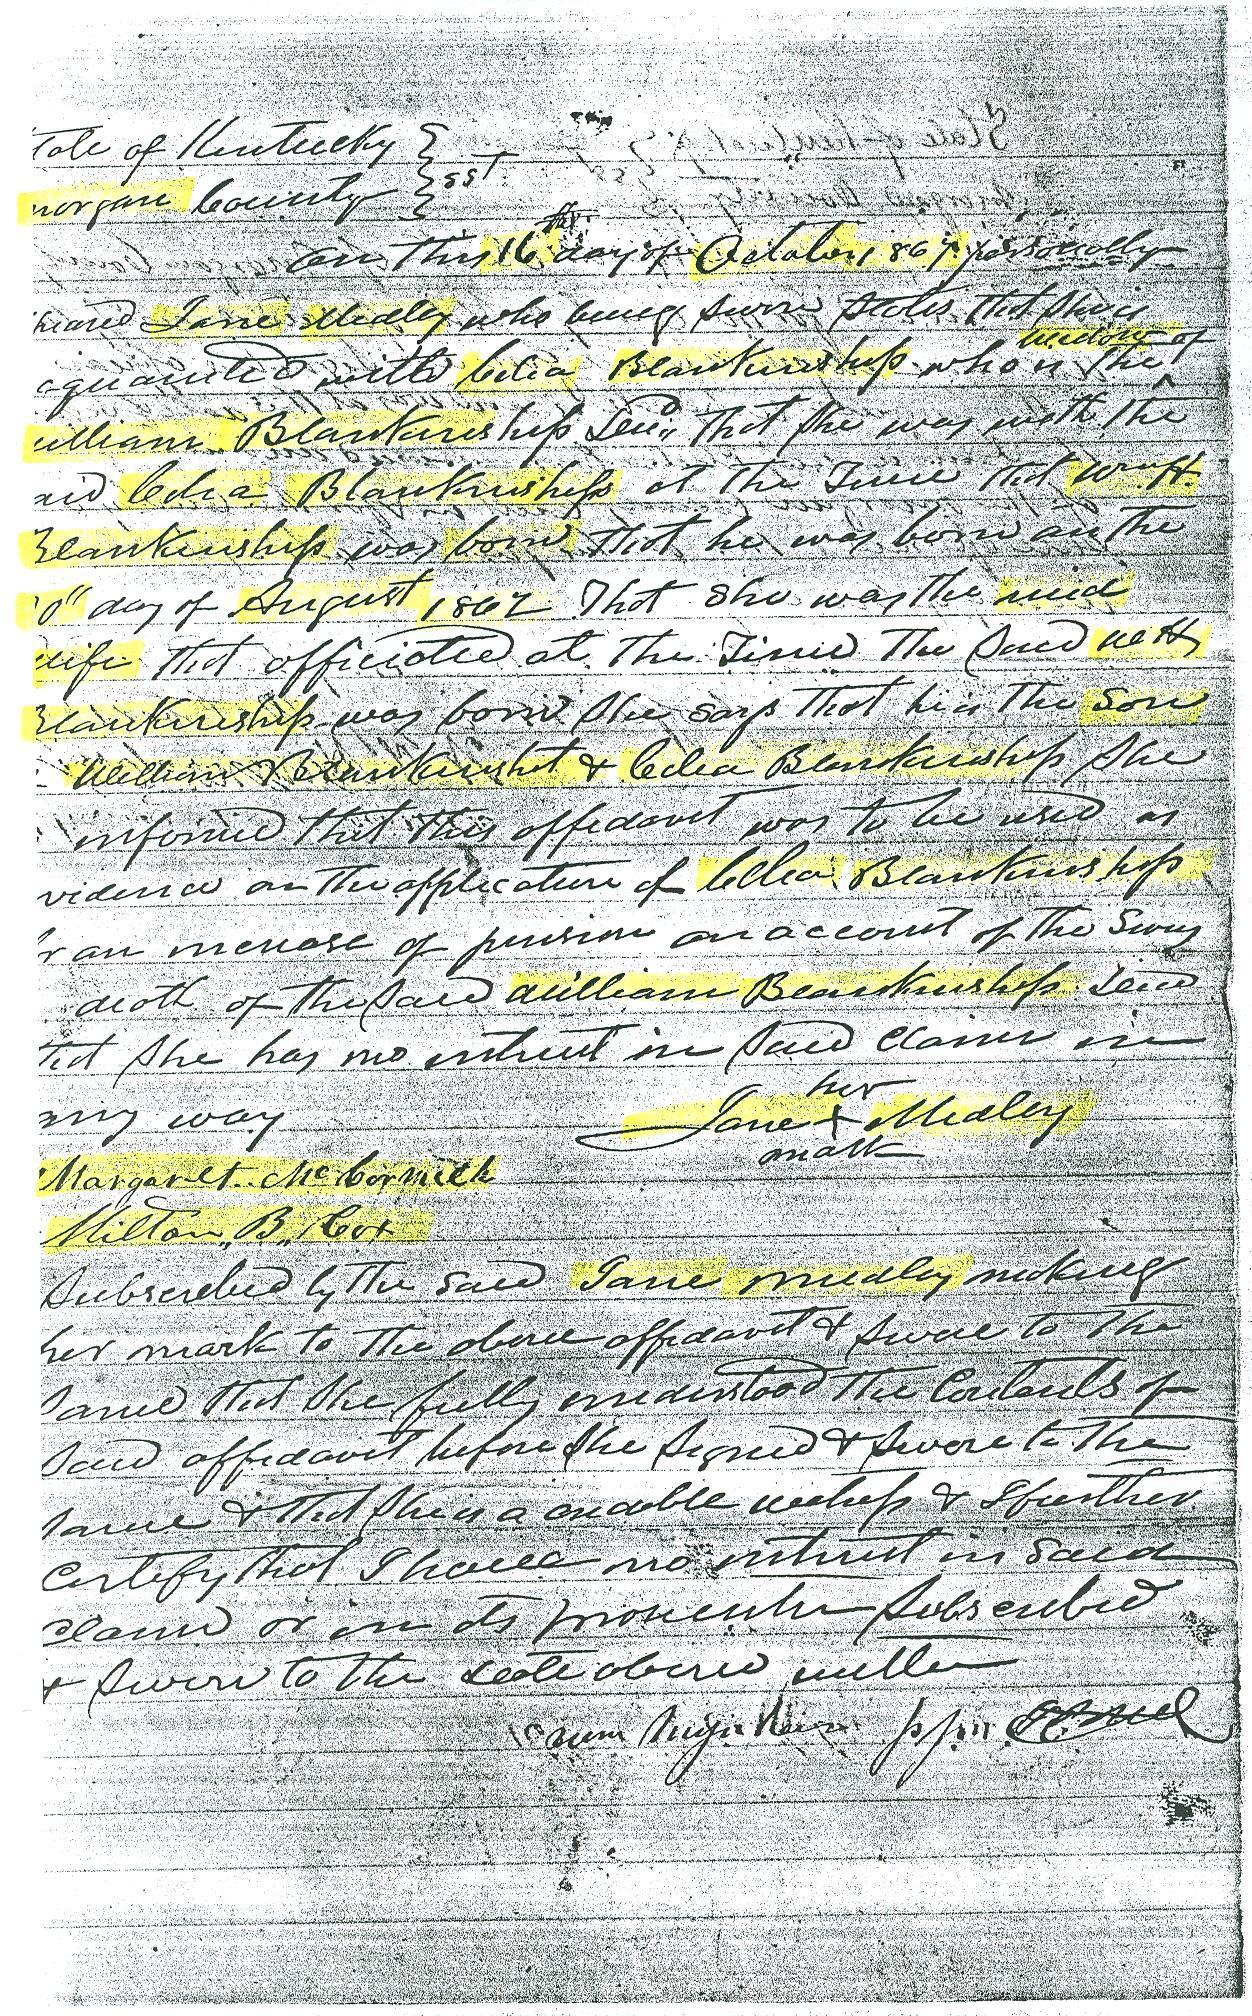 tate of Kentucky }
morgan County } sst
on this 16th day of October 1867 personally
peared Jane Medley who being sworn states that she is
aquainted with Celia Blankinship who is the widow of
william Blankinship that she was with the
aid Celia Blankinship at the Time that W.H.
Blankinship was born that he was born on the
0" day of August 1862 That she was the mid
wife that officiated at the Time the said WH
Blankinship was born she says that he is the Son
William Blankinship & Celia Blankinship She
informed that this affedavit was to be used as
vidence on the application of Celia Blankinship
r an increase of pension on account of the
death of the said William Blankinship
that she has no intrest in said claim in
any way
Jane her + mark Medley
Margaret McCormick
Milton,, B,, Cox
Subscribed by the said Jane medley making
her mark to the above affidavit & swore to the
same that she fully understood the Contents of
said affidavit before she signed & swore to the
same & that she is a credible & I further
Certify that I have no intrest in said
claim or in its prosecution Subscribed
& sworn to the date above